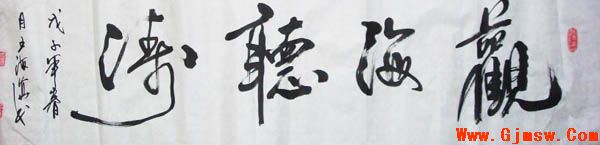 觀海聽濤
戊子年春
月
Www.Gjmsw.Com